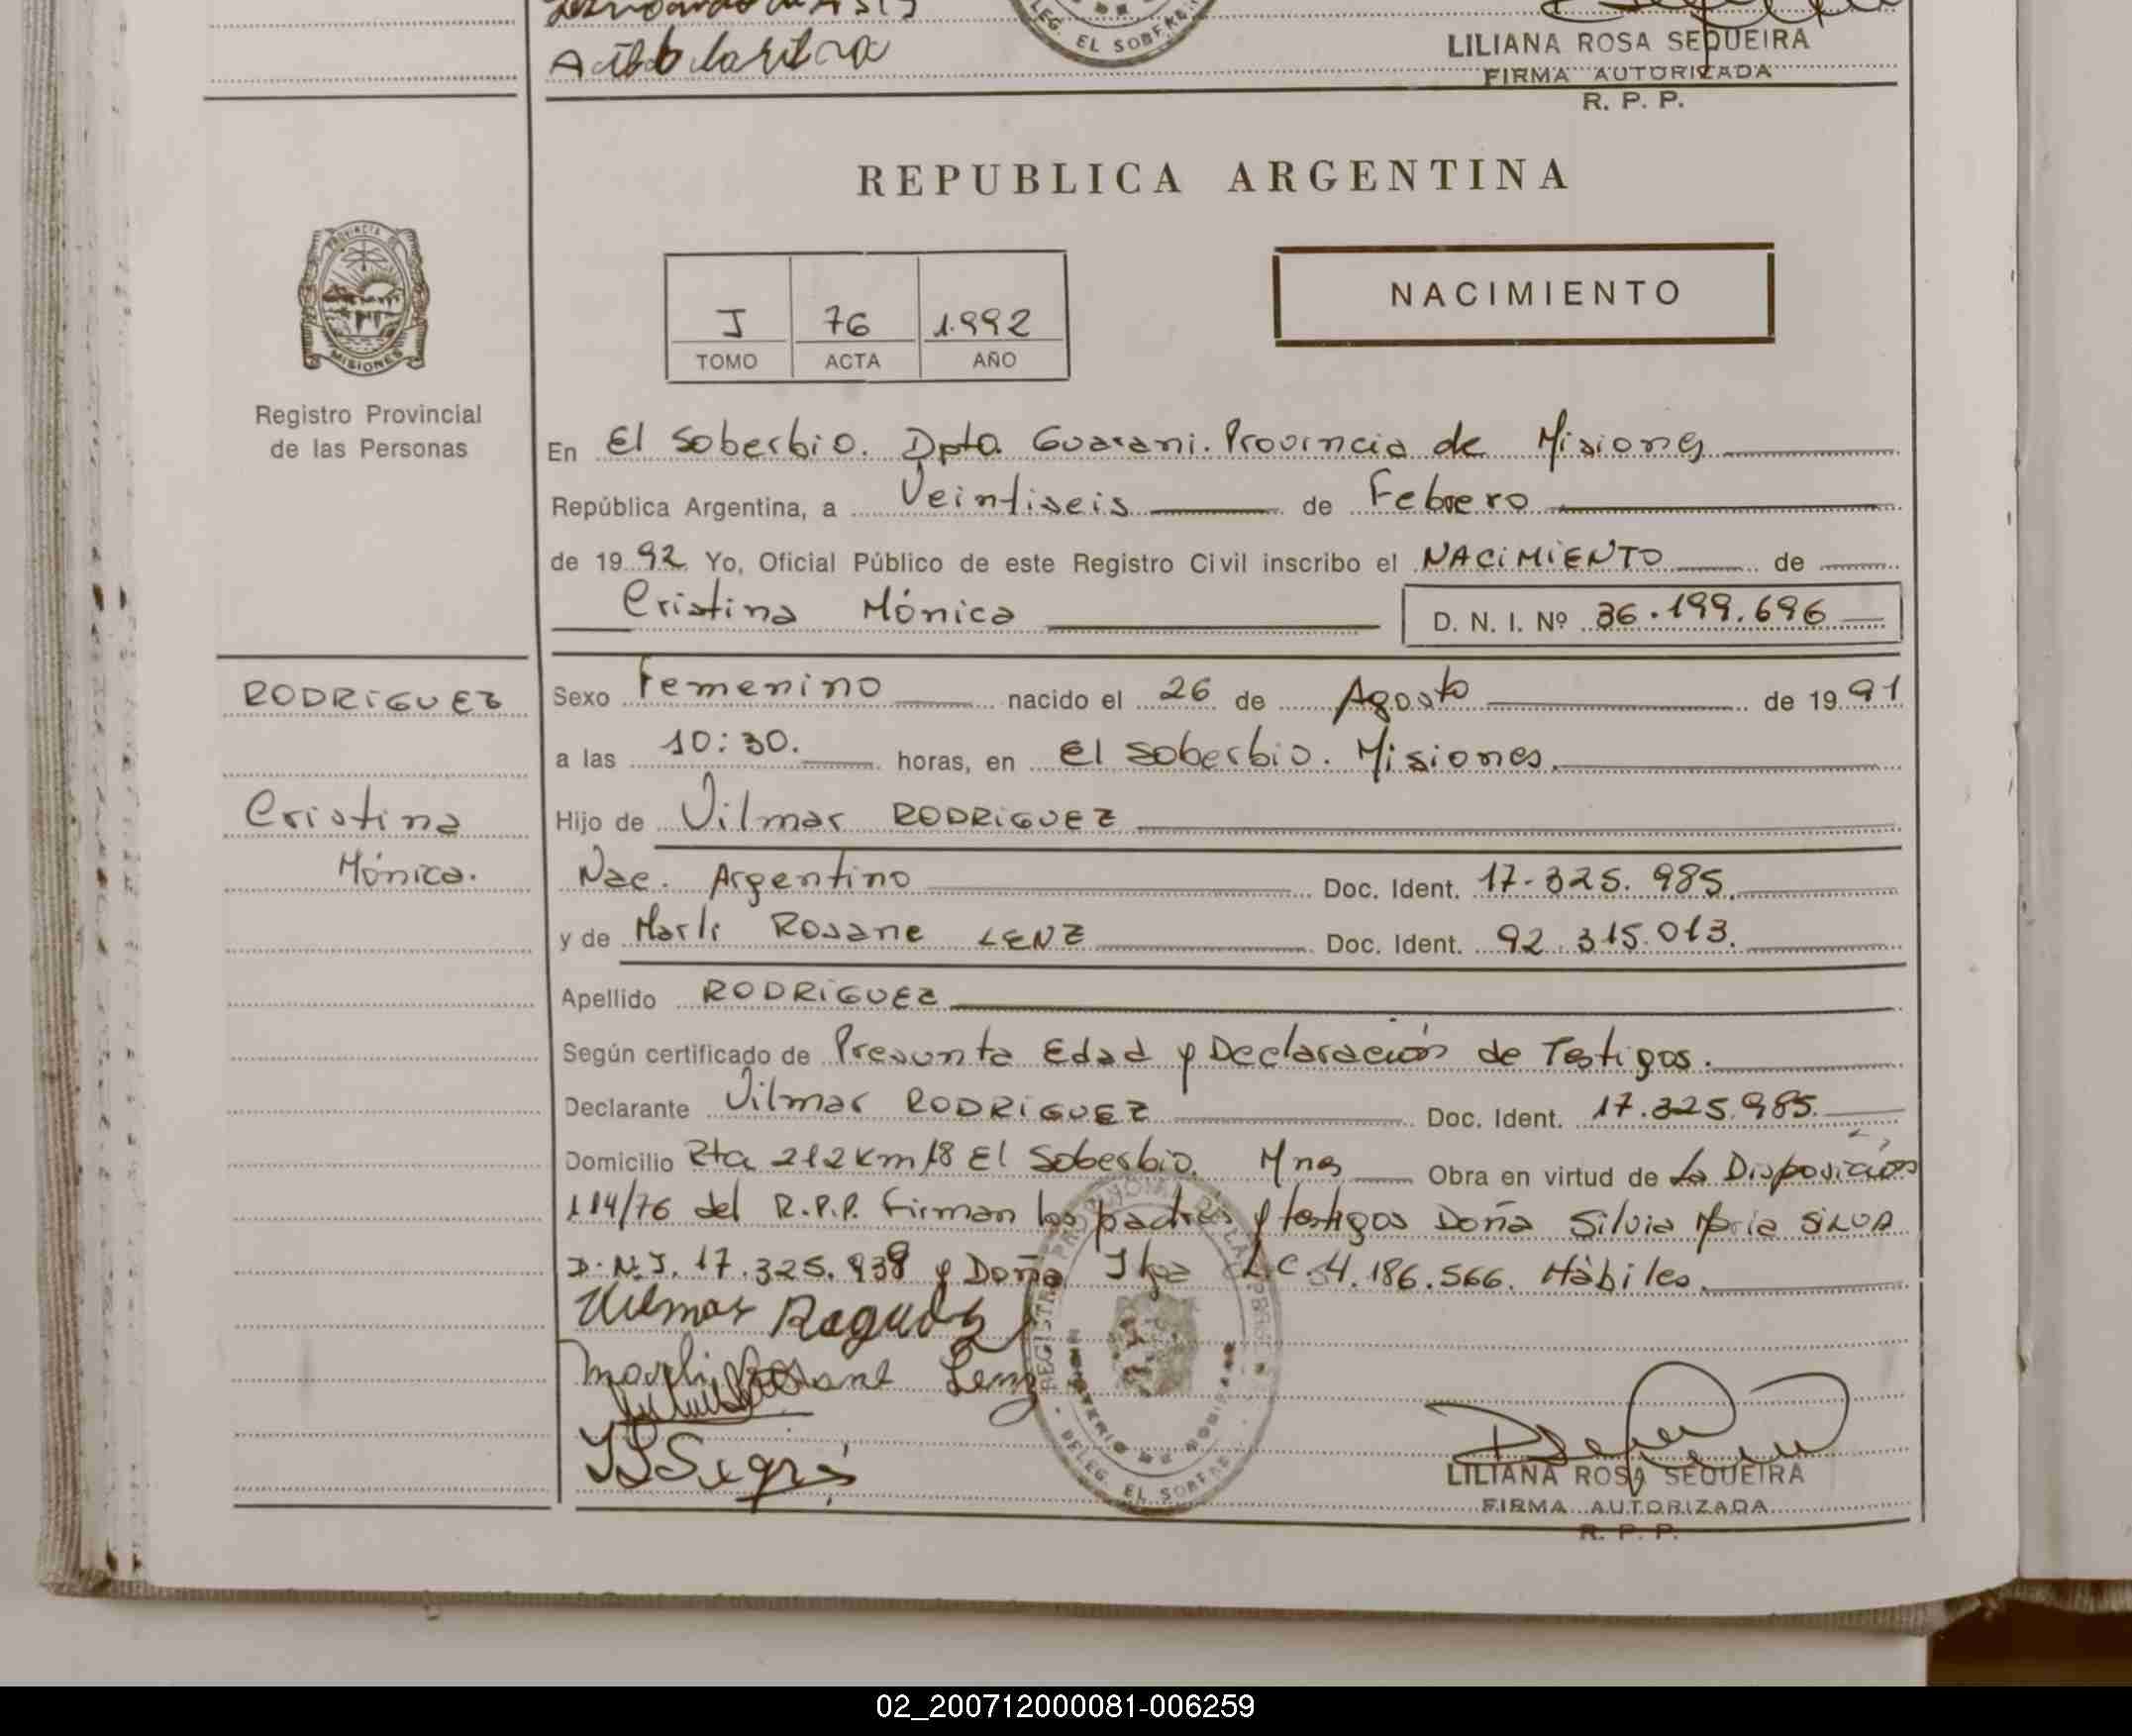 LEG. EL SOBER
LILIANA ROSA SEQUEIRA
FIRMA AUTORIZADA
R. P. P.
REPUBLICA ARGENTINA
PROVINCIA DE
MISIONES
Registro Provincial
de las Personas
J 76 1.992
TOMO ACTA AÑO
NACIMIENTO
En El Soberbio. Dpto. Guarani. Provincia de Misiones
República Argentina, a Veintiseis de Febrero
de 1992 Yo, Oficial Público de este Registro Civil inscribo el NACIMIENTO de
Cristina Mónica D. N. I. Nº 36.199.696
RODRIGUEZ
Cristina
Mónica.
Sexo Femenino nacido el 26 de Agosto de 1991
a las 10:30. horas, en El Soberbio. Misiones.
Hijo de Vilmar RODRIGUEZ
Nac. Argentino Doc. Ident. 17.325.985.
y de Marli Rosane LENZ Doc. Ident. 92.315.013.
Apellido RODRIGUEZ
Según certificado de Presunta Edad y Declaración de Testigos.
Declarante Vilmar RODRIGUEZ Doc. Ident. 17.325.985.
Domicilio Rta 212 Km 18 El Soberbio. Mnes Obra en virtud de La Disposición
114/76 del R.P.P. Firman los padres y testigos Doña Silvia Maria SILVA
D.N.I. 17.325.938 y Doña L.C. 4.186.566. Hábiles.
Marli Rosane Lenz
LILIANA ROSA SEQUEIRA
FIRMA AUTORIZADA
R. P. P.
02_200712000081-006259